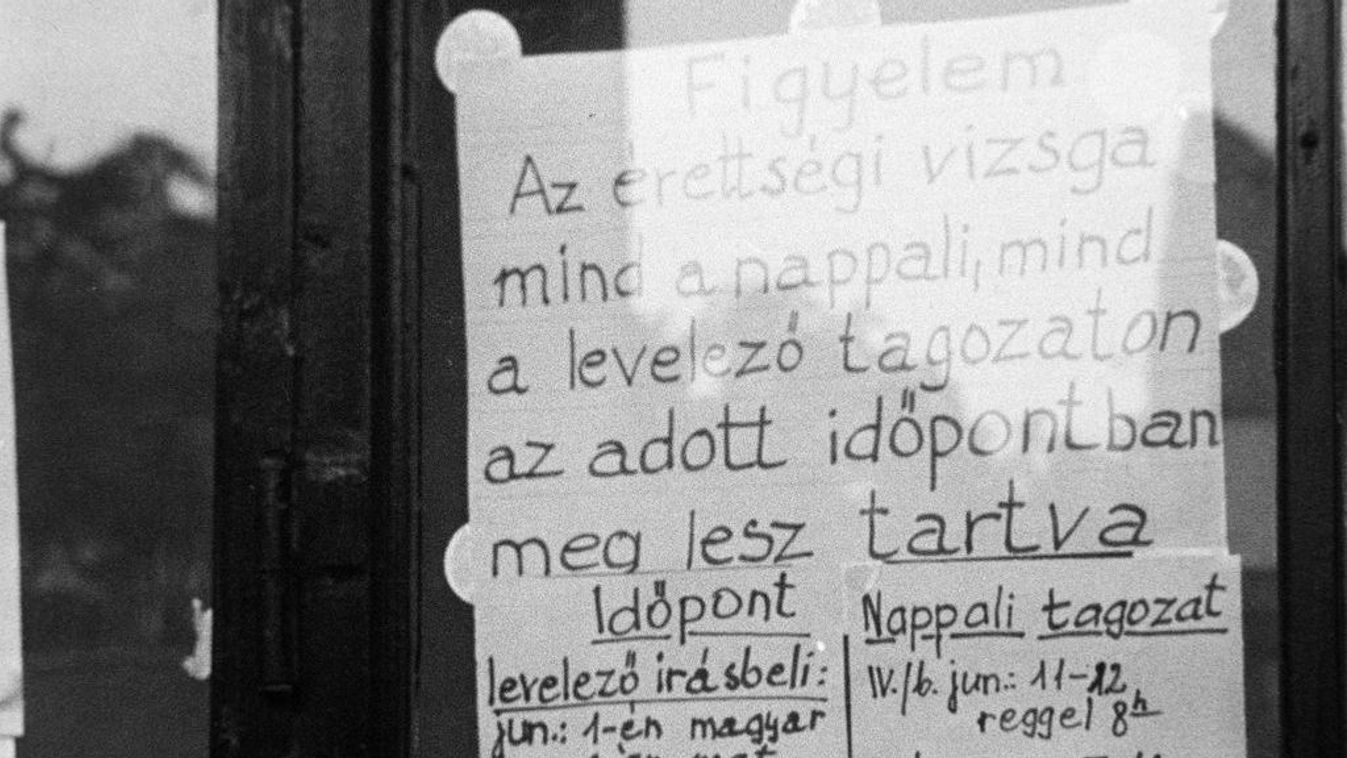 Figyelem
Az érettségi vizsga
mind a nappali, mind
a levelező tagozaton
az adott időpontban
meg lesz tartva
Időpont
levelező irásbeli:
jun.: 1-én magyar
Nappali tagozat
IV./b. jun.: 11-12
reggel 8h